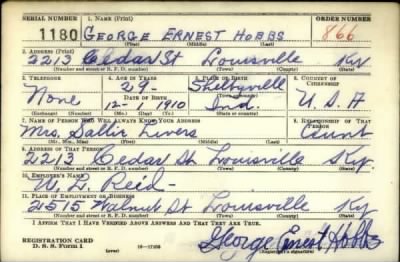 SERIAL NUMBER 1. NAME (Print) ORDER NUMBER
1180 GEORGE ERNEST HOBBS 866
(First) (Middle) (Last)
2. ADDRESS (Print)
2213 Cedar St Louisville Ky
(Number and street or R. F. D. number) (Town) (County) (State)
3. TELEPHONE 4. AGE IN YEARS 5. PLACE OF BIRTH 6. COUNTRY OF CITIZENSHIP
29 Shelbyville
DATE OF BIRTH (Town or county)
None 12- 1910 Ind. U.S.A
(Exchange) (Number) (Mo.) (Day) (Yr.) (State or country)
7. NAME OF PERSON WHO WILL ALWAYS KNOW YOUR ADDRESS 8. RELATIONSHIP OF THAT PERSON
Mrs. Sallie Livers Aunt
(Mr., Mrs., Miss) (First) (Middle) (Last)
9. ADDRESS OF THAT PERSON
2213 Cedar St. Louisville Ky.
(Number and street or R. F. D. number) (Town) (County) (State)
10. EMPLOYER'S NAME
Reed-
11. PLACE OF EMPLOYMENT OR BUSINESS
2515 Walnut St Louisville Ky
(Number and street or R. F. D. number) (Town) (County) (State)
I AFFIRM THAT I HAVE VERIFIED ABOVE ANSWERS AND THAT THEY ARE TRUE.
REGISTRATION CARD George Ernest Hobbs
D. S. S. Form 1 (over) 16-17105 (Registrant's signature)